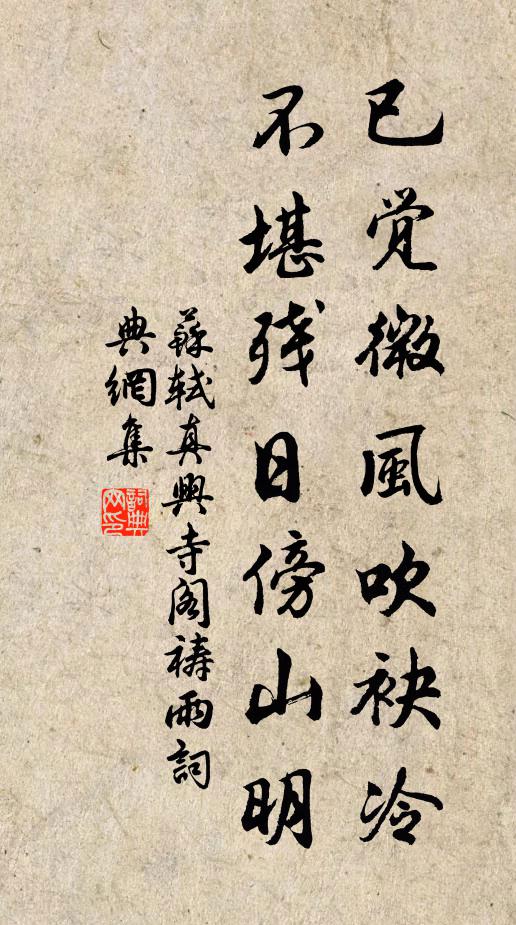 已觉微風吹袂冷
不堪残日傍山明
蘇軾真興寺阁禱雨詞
典網集
詞典网印